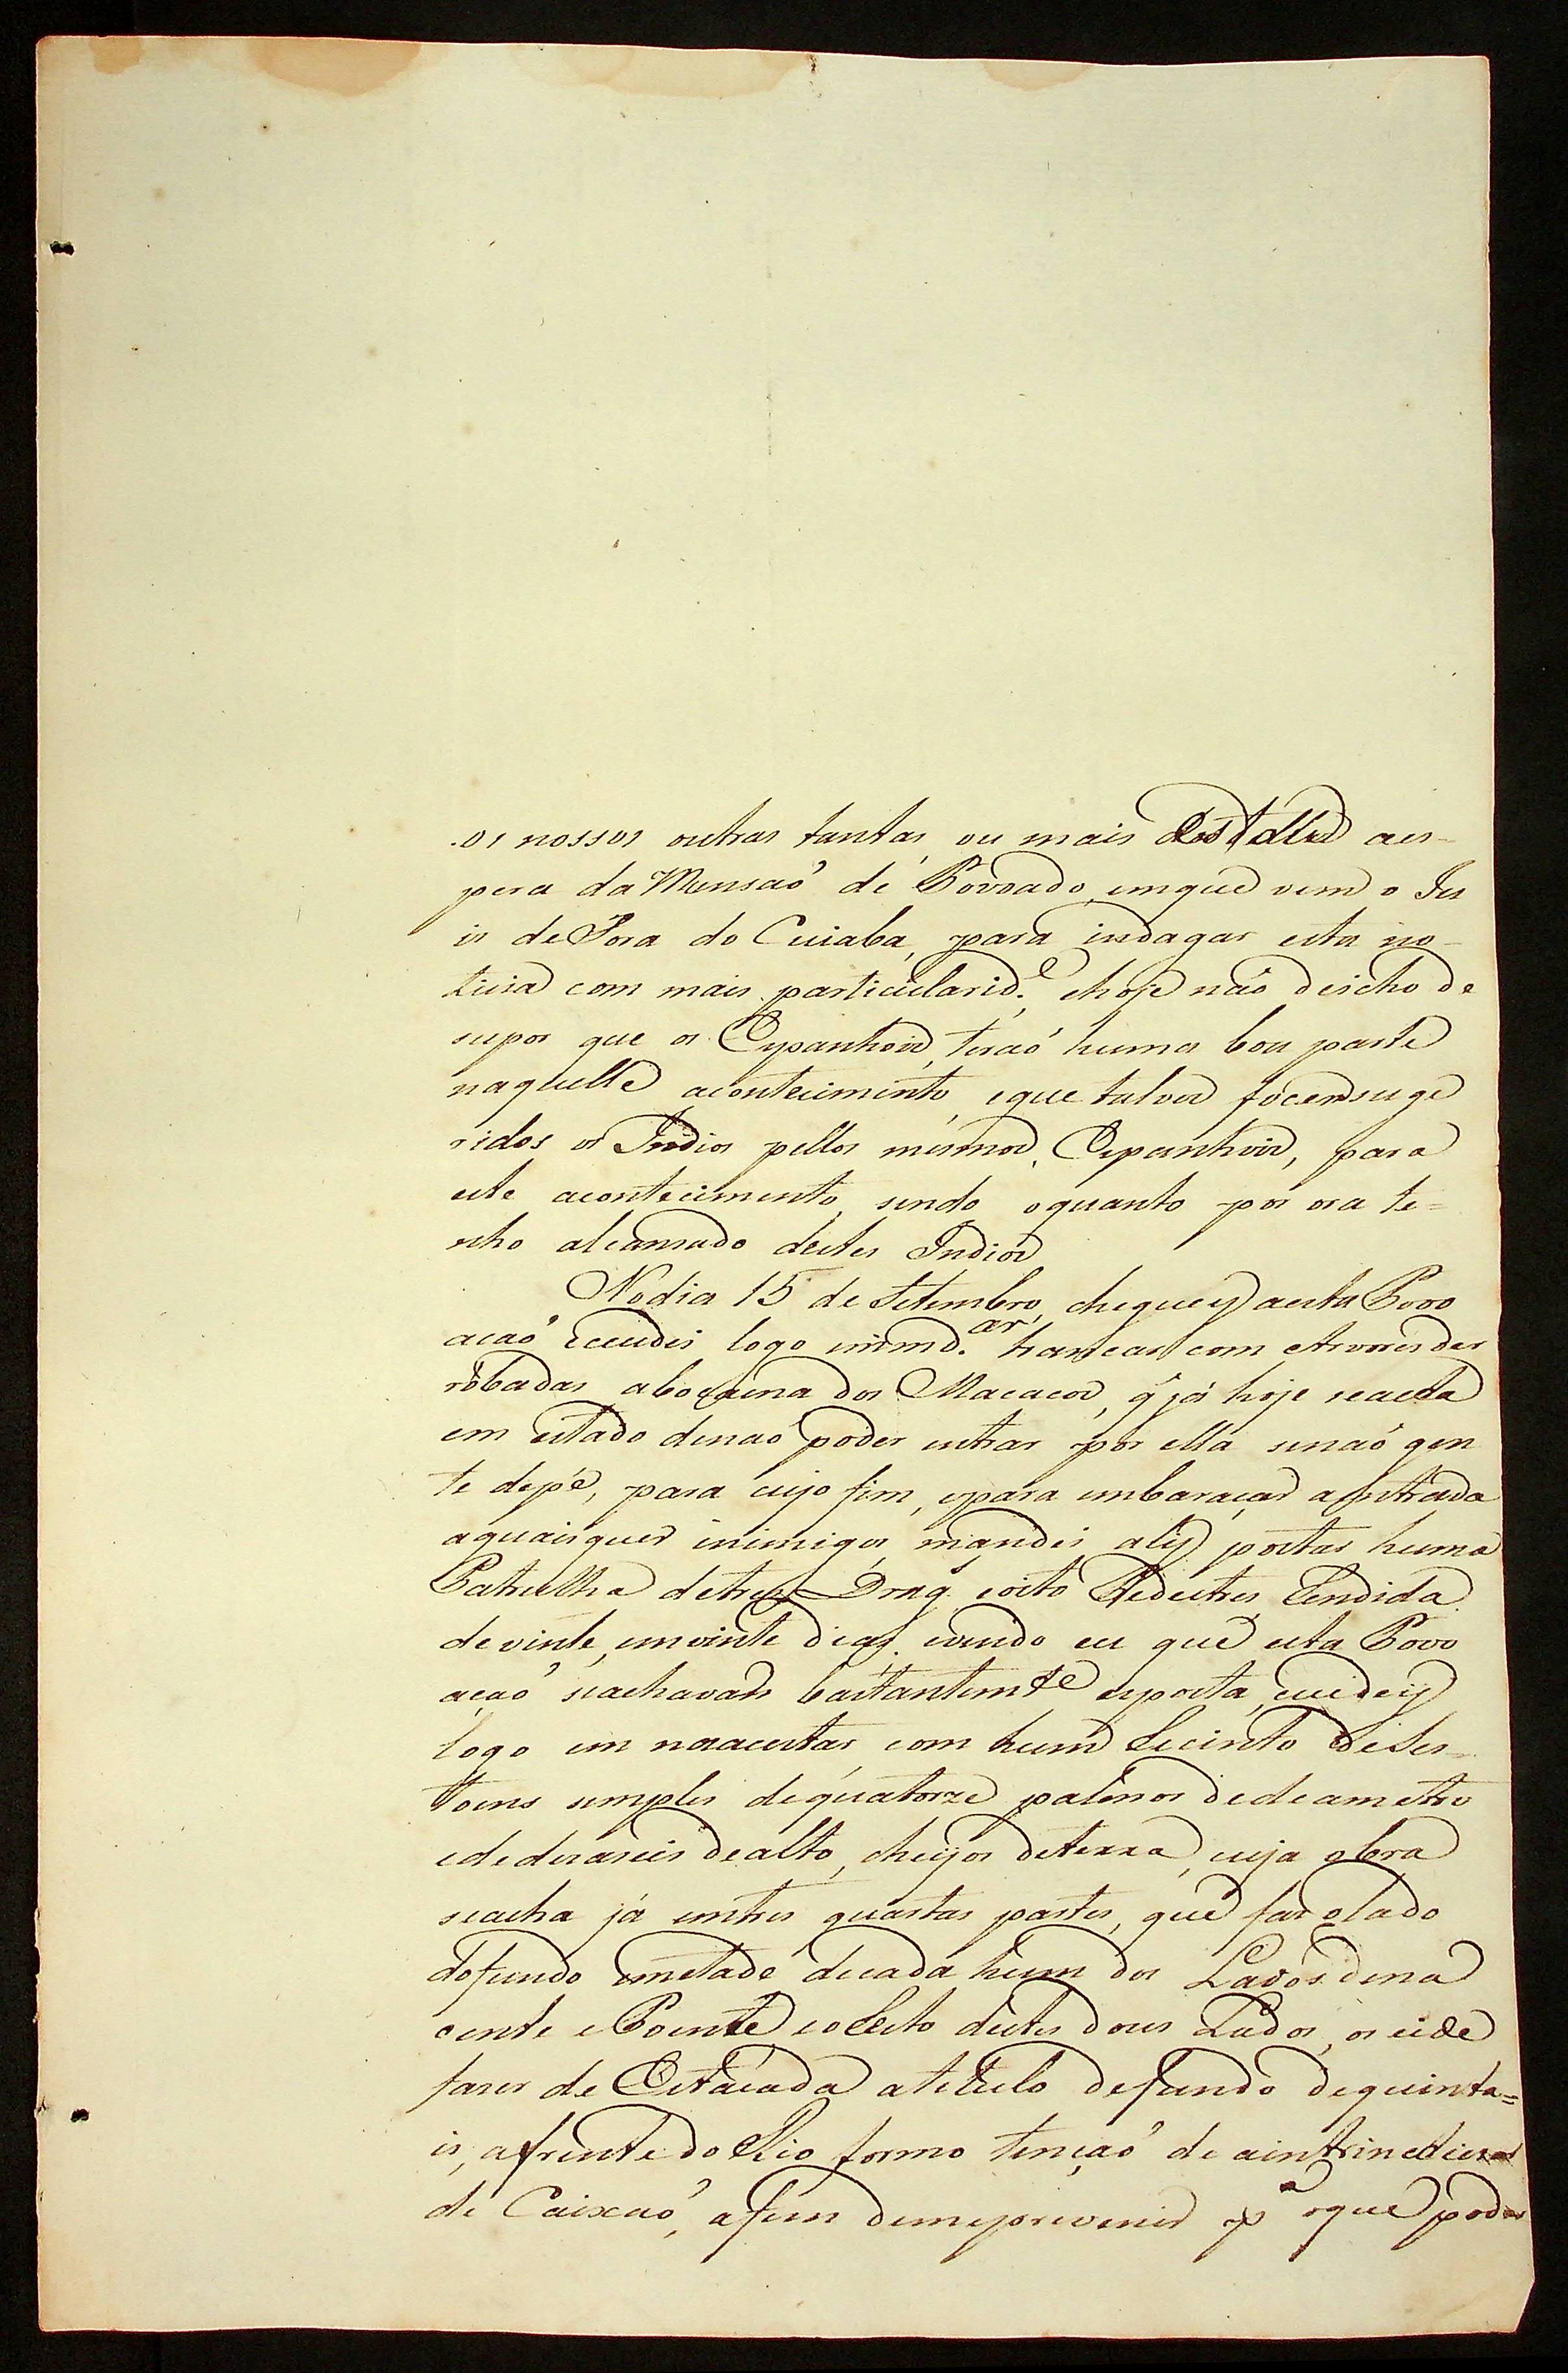 os nossos outras tantas, ou mais destellas aes-
pera da Munsaõ de Povoado, emque vem o Ju
is de Fora do Cuiaba, para indagar esta no-
ticia com mais particularid.e, ehoje não deicho de
supor que os Espanhois, teraõ huma boa parte
naquelle acontecimento, eque talves fôcem suge
ridos os Indios pellos mesmos Espanhois, para
este acontecimento, sendo oquanto por ora te=
nho alcansado destes Indios
No dia 15 de Setembro, cheguey aesta Povo
acaõ ecuidei logo immd.ar trancar com Arvores der
robadas abocaina dos Macacos, q' já hoje seacha
em estado denaõ poder entrar por ella senaõ gen
te depé, para cujo fim, epara embaraçar aentrada
aquaisquer inimigos, mandei aly postar huma
Patrulha detres Drag.s eoito Pedestres Rendida
devinte, emvinte dias. evendo eu que esta Povo
açaõ seachava bastantemte exposta, cuidey
logo em na acestar com hum Recinto deses-
toens simples dequatorze palmos dedeametro
ededezaseis dealto, cheijos deterra, cuja obra
seacha já emtres quartas partes, que faz olado
dofundo emetade decada hum dos Lados dena
cente e Poente eoResto destes dous Lados, os eide
fazer de Estacada atitulo defundo dequinta=
is, afrente do Rio formo tençaõ de aintrincheirar
de Caixaõ, afim demeprevenir pª oque poder